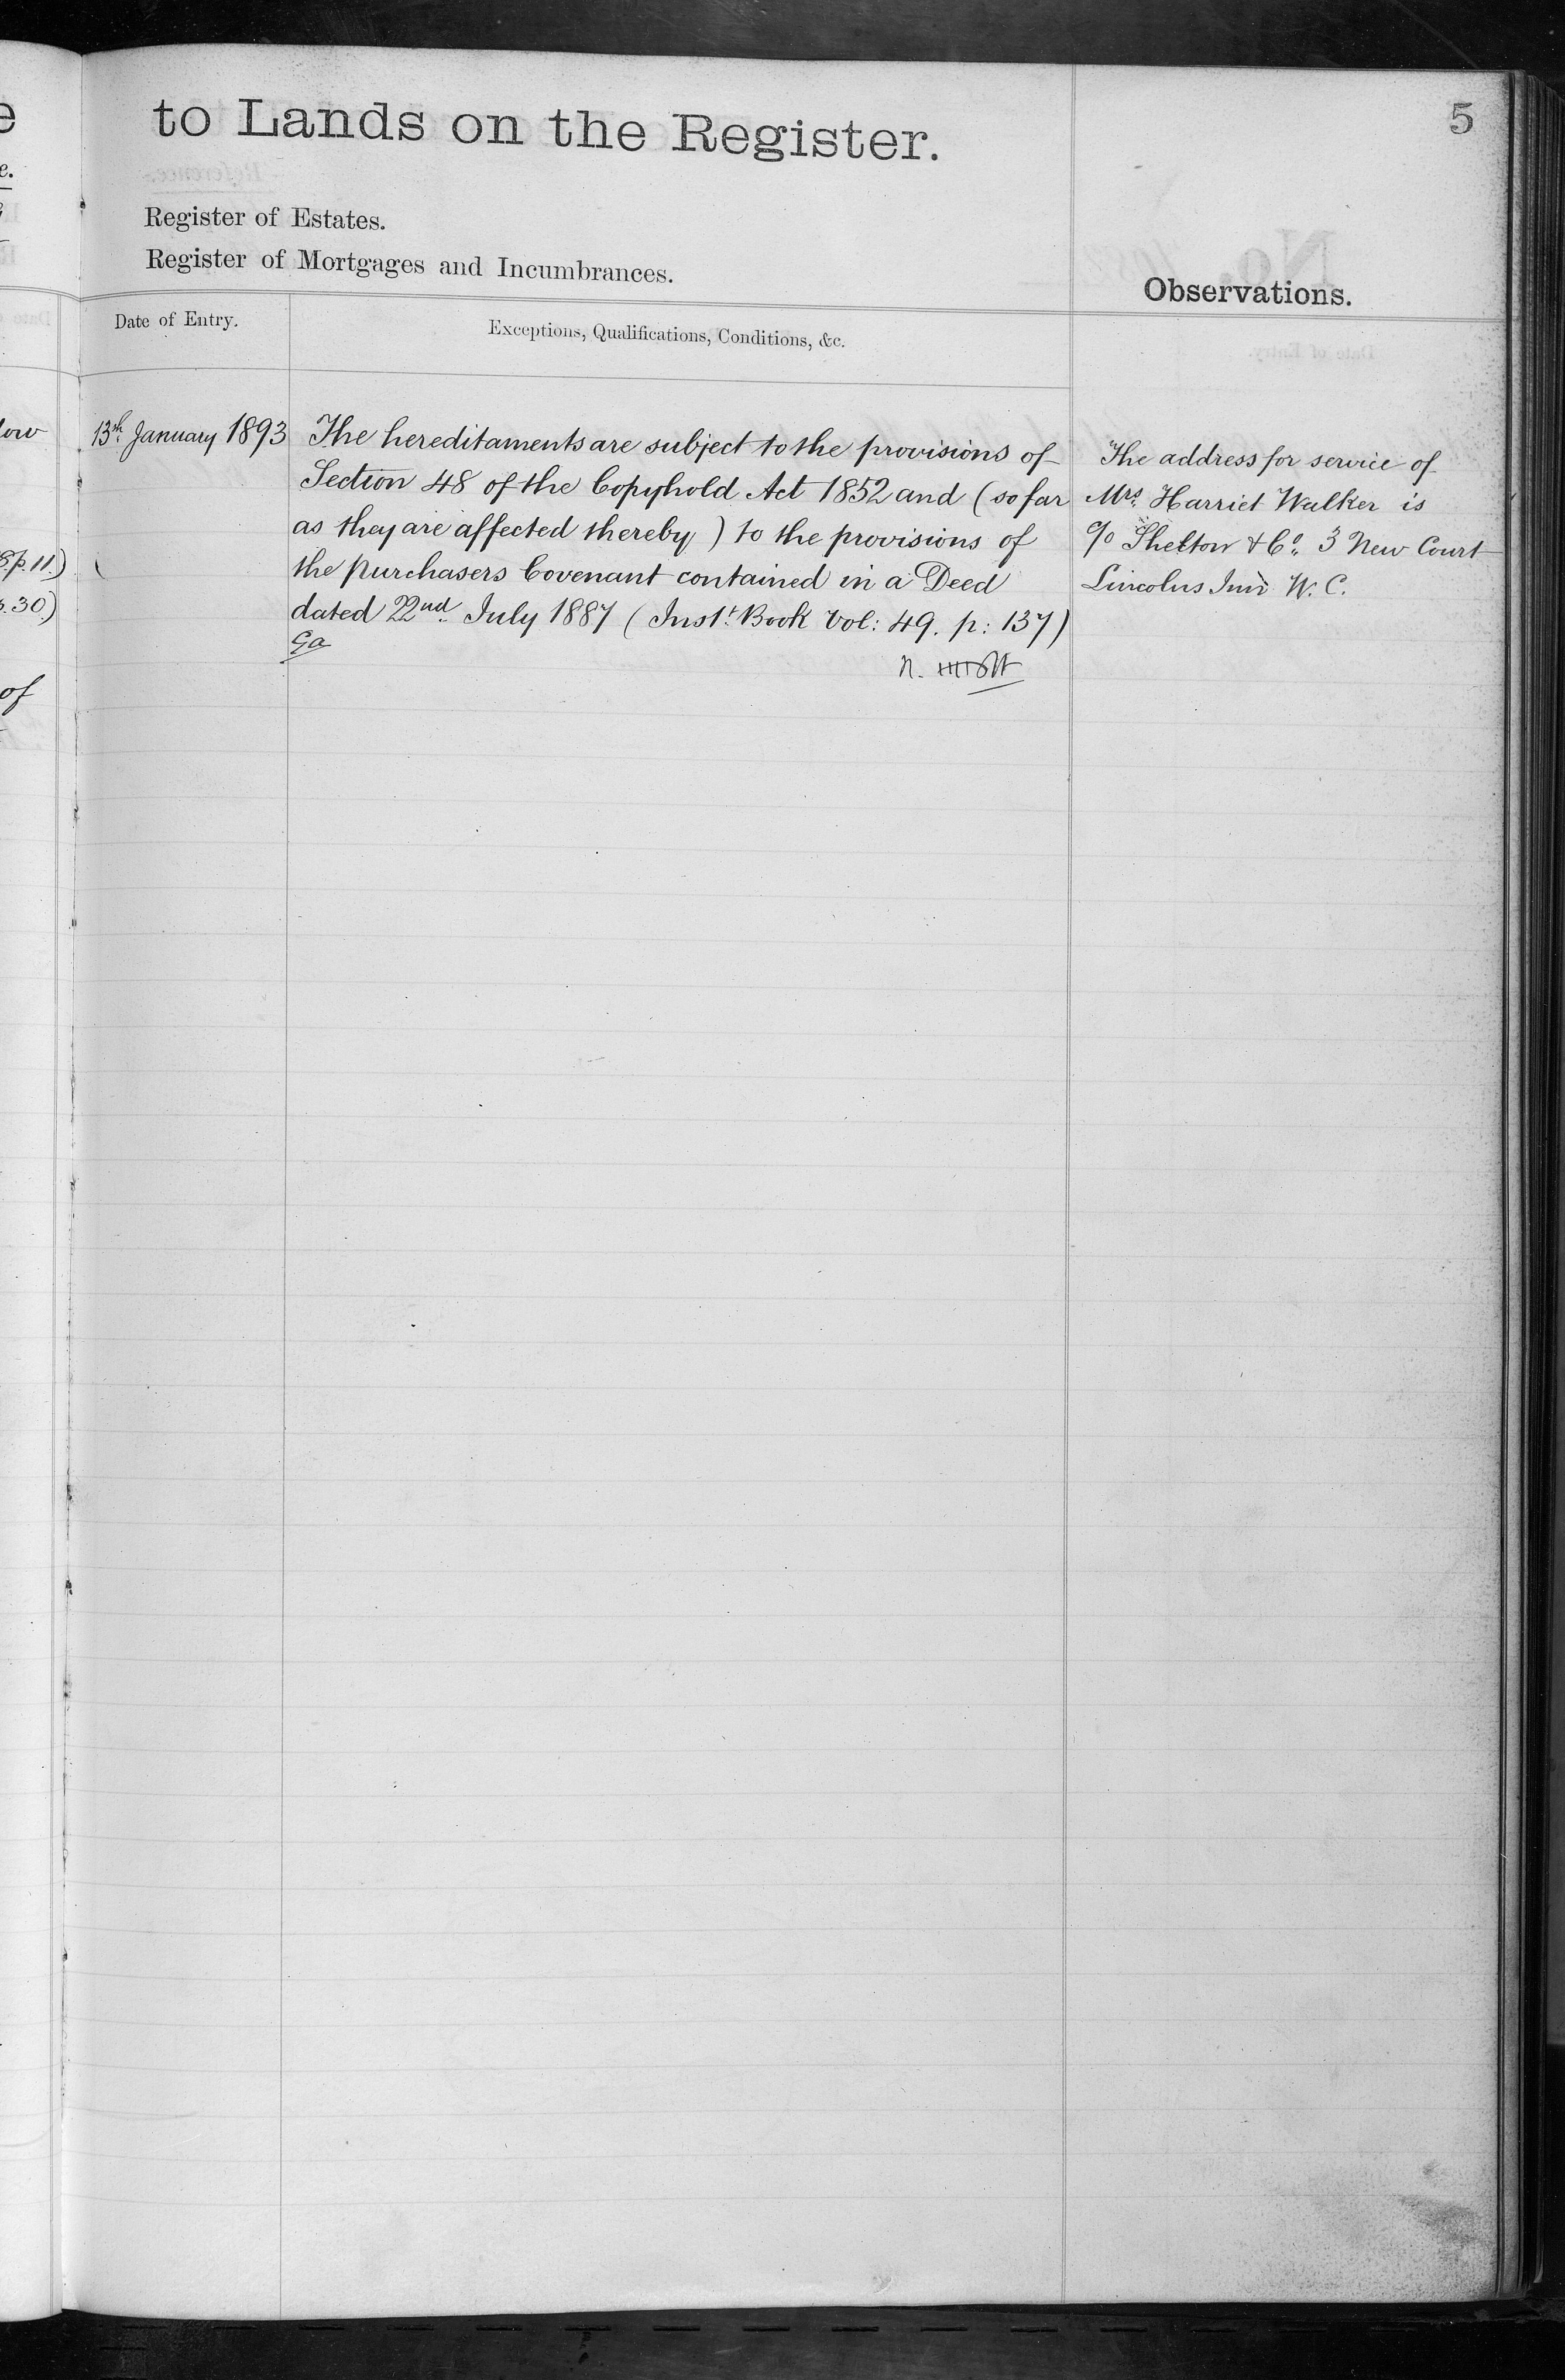 to Lands on the Register.
5
Register of Estates.
Register of Mortgages and Incumbrances.
Observations.
Date of Entry.
Exceptions, Qualifications, Conditions, &c.
13th January 1893
The hereditaments are subject to the provisions of
Section 48 of the Copyhold Act 1852 and (so far
as they are affected thereby) to the provisions of
the purchasers Covenant contained in a Deed
dated 22nd July 1887 (Inst. Book Vol: 49. p: 137)
The address for service of
Mrs. Harriet Walker is
c/o Shelton & Co. 3 New Court
Lincolns Inn W.C.
e
e.
low
p. 11.)
30)
of